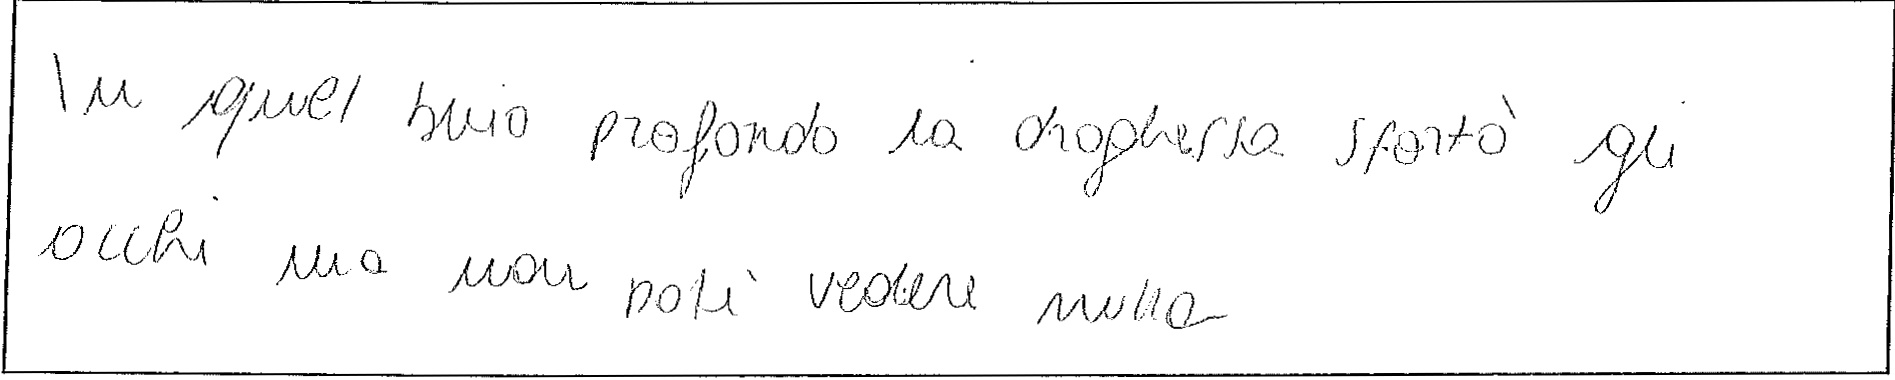 In quel buio profondo la draghessa sfortò gli
occhi ma non poté vedere nulla